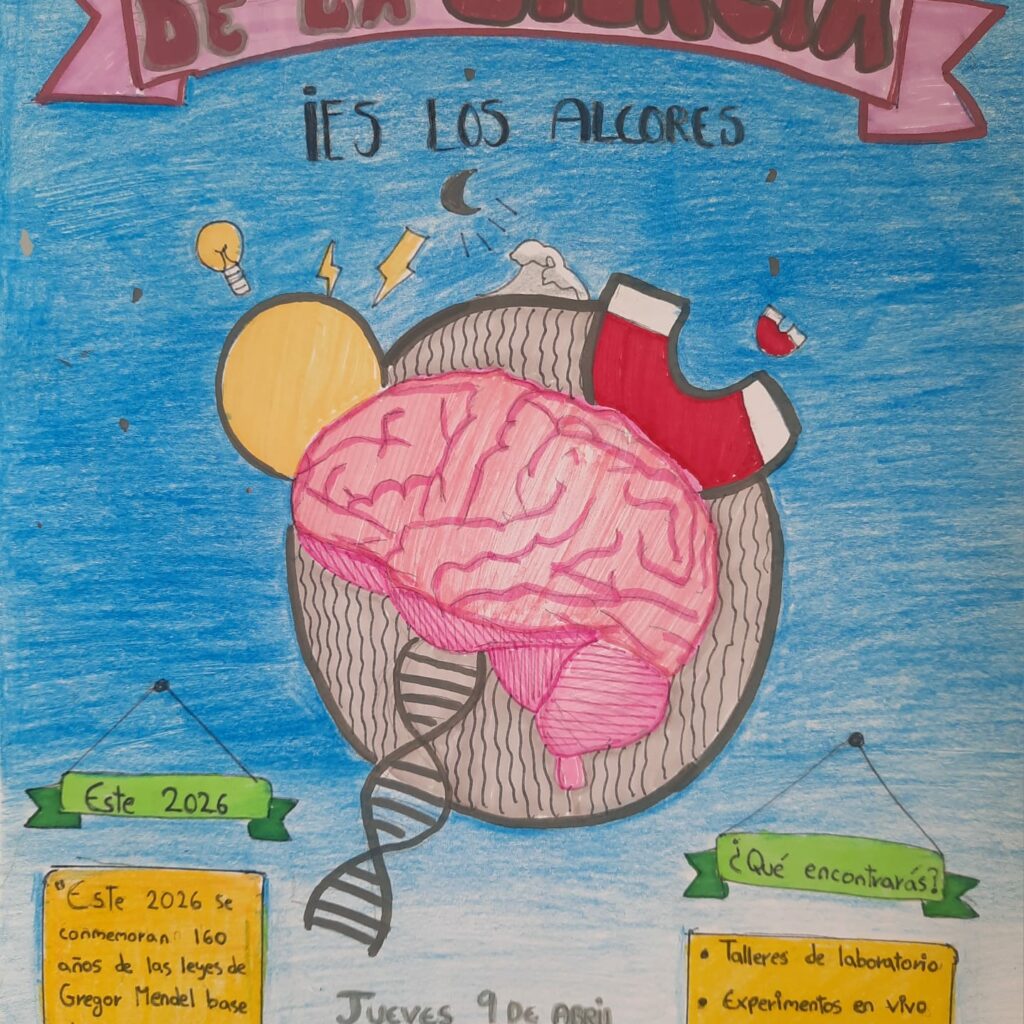 DE LA CIENCIA
IES LOS ALCORES
Este 2026
"Este 2026 se
conmemoran 160
años de las leyes de
Gregor Mendel base
¿Qué encontrarás?
• Talleres de laboratorio
• Experimentos en vivo
JUEVES 9 DE ABRIL